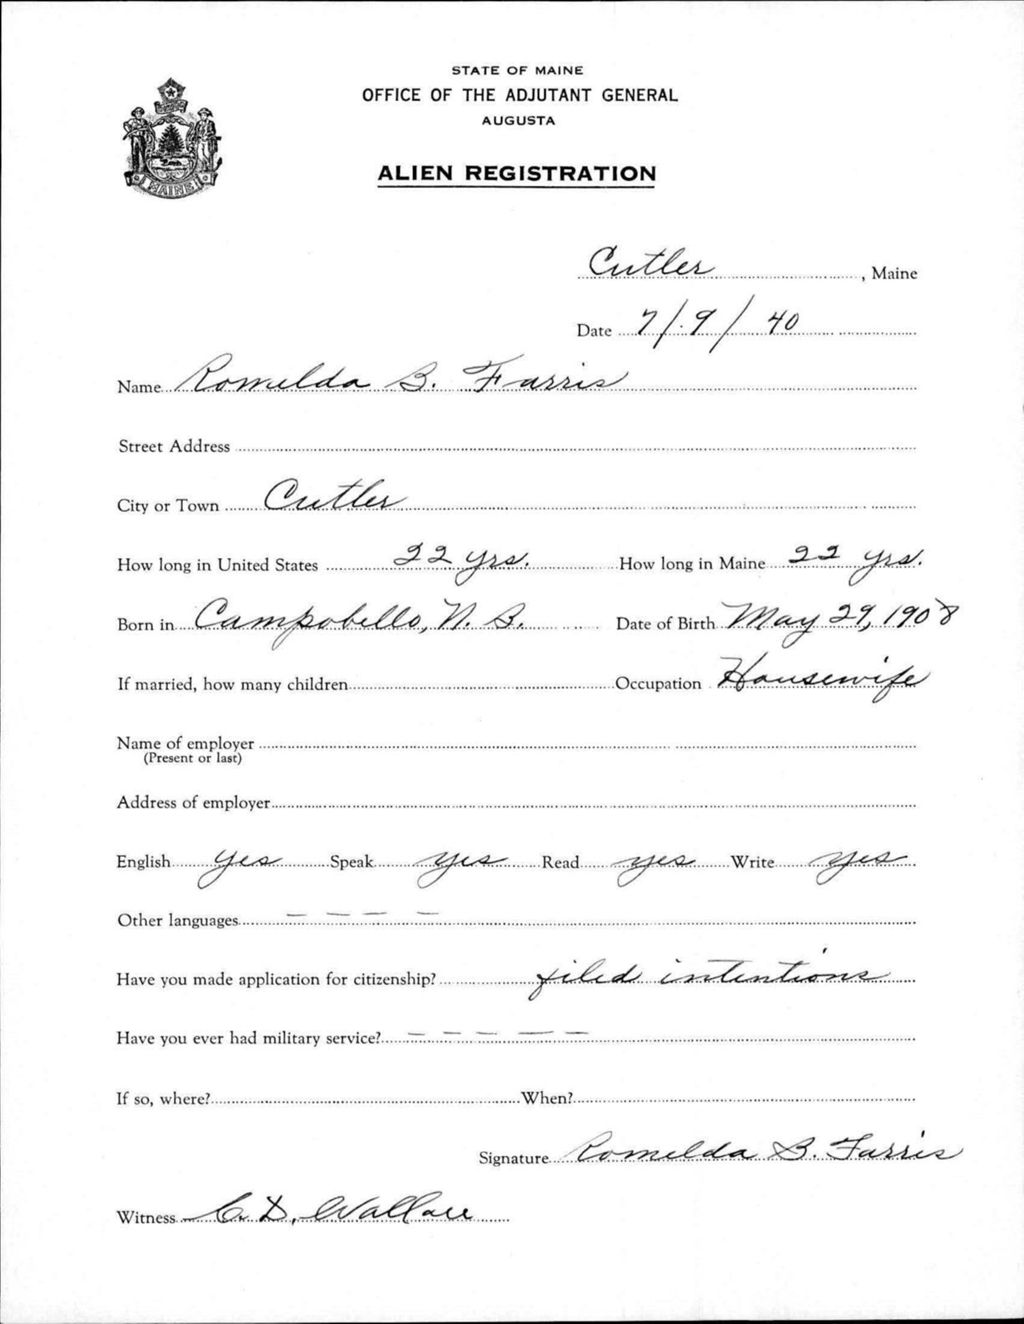 STATE OF MAINE
OFFICE OF THE ADJUTANT GENERAL
AUGUSTA
ALIEN REGISTRATION
MAINE
Cutler, Maine
Date 7/9/40
Name Romelda B. Farris
Street Address
City or Town Cutler
How long in United States 22 yrs. How long in Maine 22 yrs.
Born in Campobello, N. B. Date of Birth May 29, 1908
If married, how many children Occupation Housewife
Name of employer
(Present or last)
Address of employer
English Yes Speak yes Read yes Write yes
Other languages - - - -
Have you made application for citizenship? filed intentions
Have you ever had military service? - - - - -
If so, where? When?
Signature Romelda B. Farris
Witness C. D. Wallace